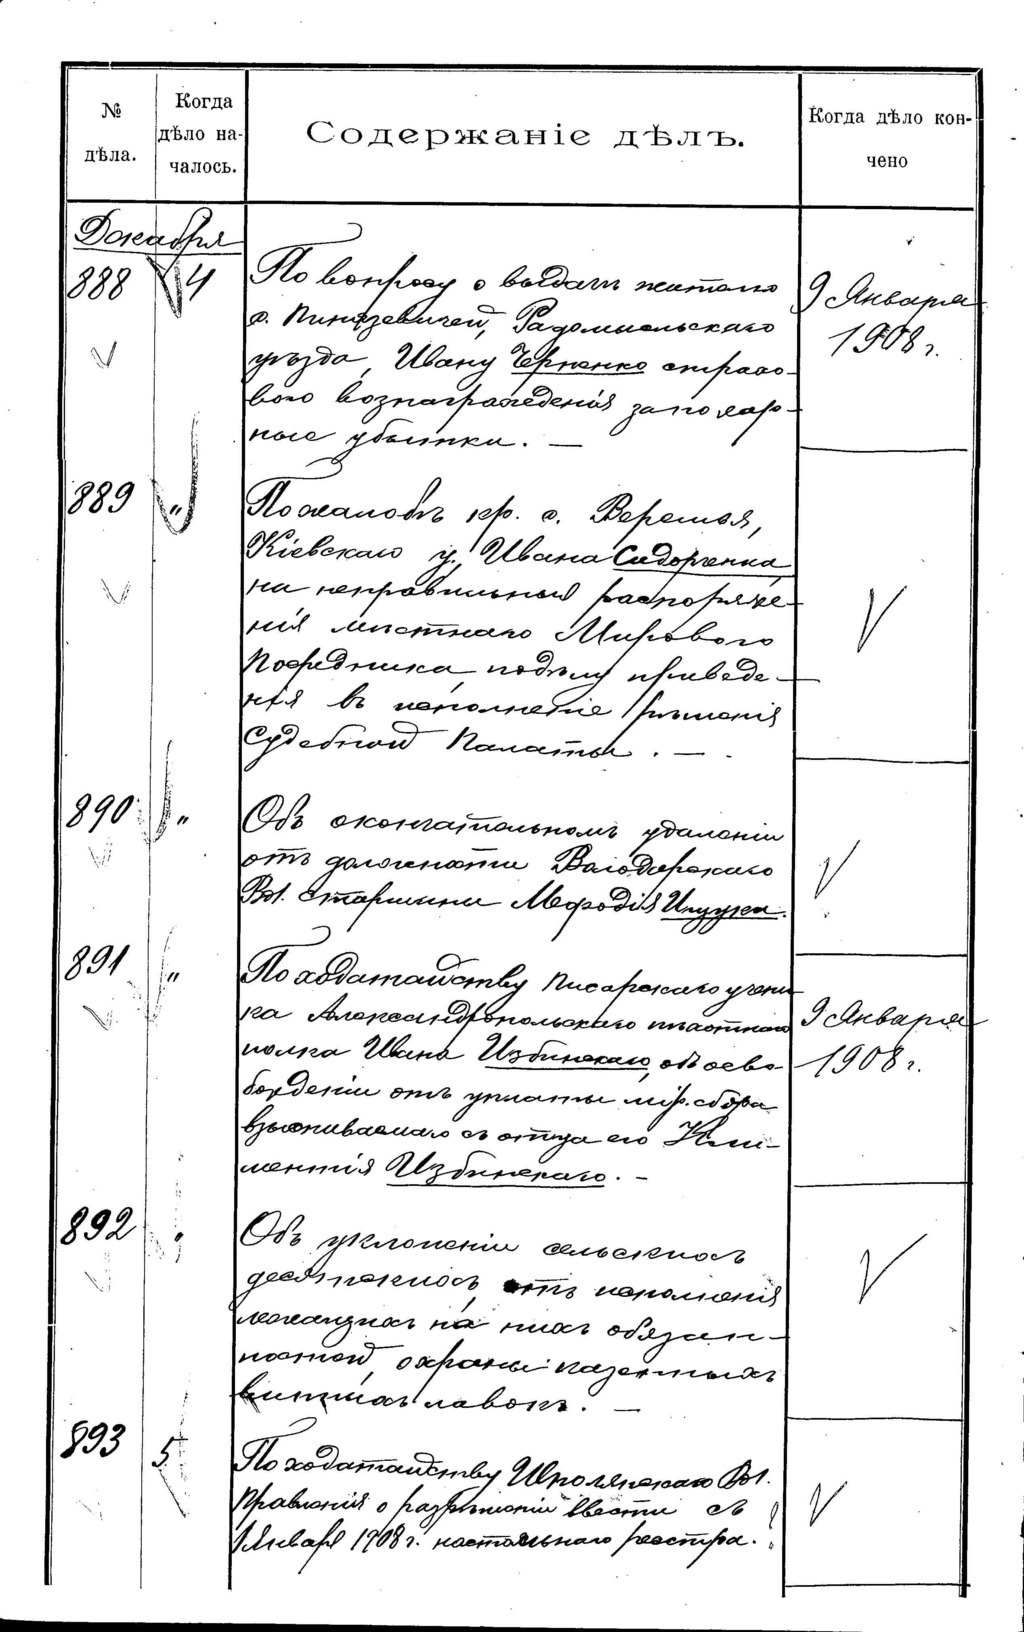 № дѣла.
Когда дѣло на-
чалось.
Содержаніе дѣлъ.
Когда дѣло кон-
чено
Декабря
888 4 По вопросу о выдачѣ жителю
с. Минизевичей, Радомысльскаго
уѣзда, Ивану Черненко страхо-
вого вознагражденія за пожар-
ные убытки. —
9 Января
1908 г.
889 „ По жалобѣ кр. с. Веремья,
Кіевскаго у., Ивана Сидорченка
на неправильныя распоряже-
нія мѣстнаго Мирового
Посредника, по дѣлу приведе-
нія въ исполненіе рѣшенія
Судебной Палаты. —
890 „ Объ окончательномъ удаленіи
отъ должности Володарскаго
Вол. Старшины Мефодія
891 „ По ходатайству писарскаго учени
ка Александропольскаго пѣхотнаго
полка Ивана Избинскаго, объ осво-
божденіи отъ уплаты мір. сбора
взыскиваемаго съ отца его Кли-
ментія Избинскаго. —
9 Января
1908 г.
892 „ Объ уклоненіи сельскихъ
десятскихъ отъ исполненія
лежащихъ на нихъ обязан-
ностей, охраны казенныхъ
винныхъ лавокъ. —
893 5 По ходатайству Шполянскаго Вол.
Правленія о разрѣшеніи ввести съ
1 Января 1908 г. настольнаго реестра.